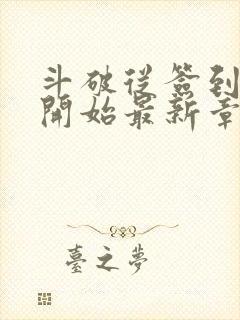 斗破從簽到
開始最新章
臺之夢